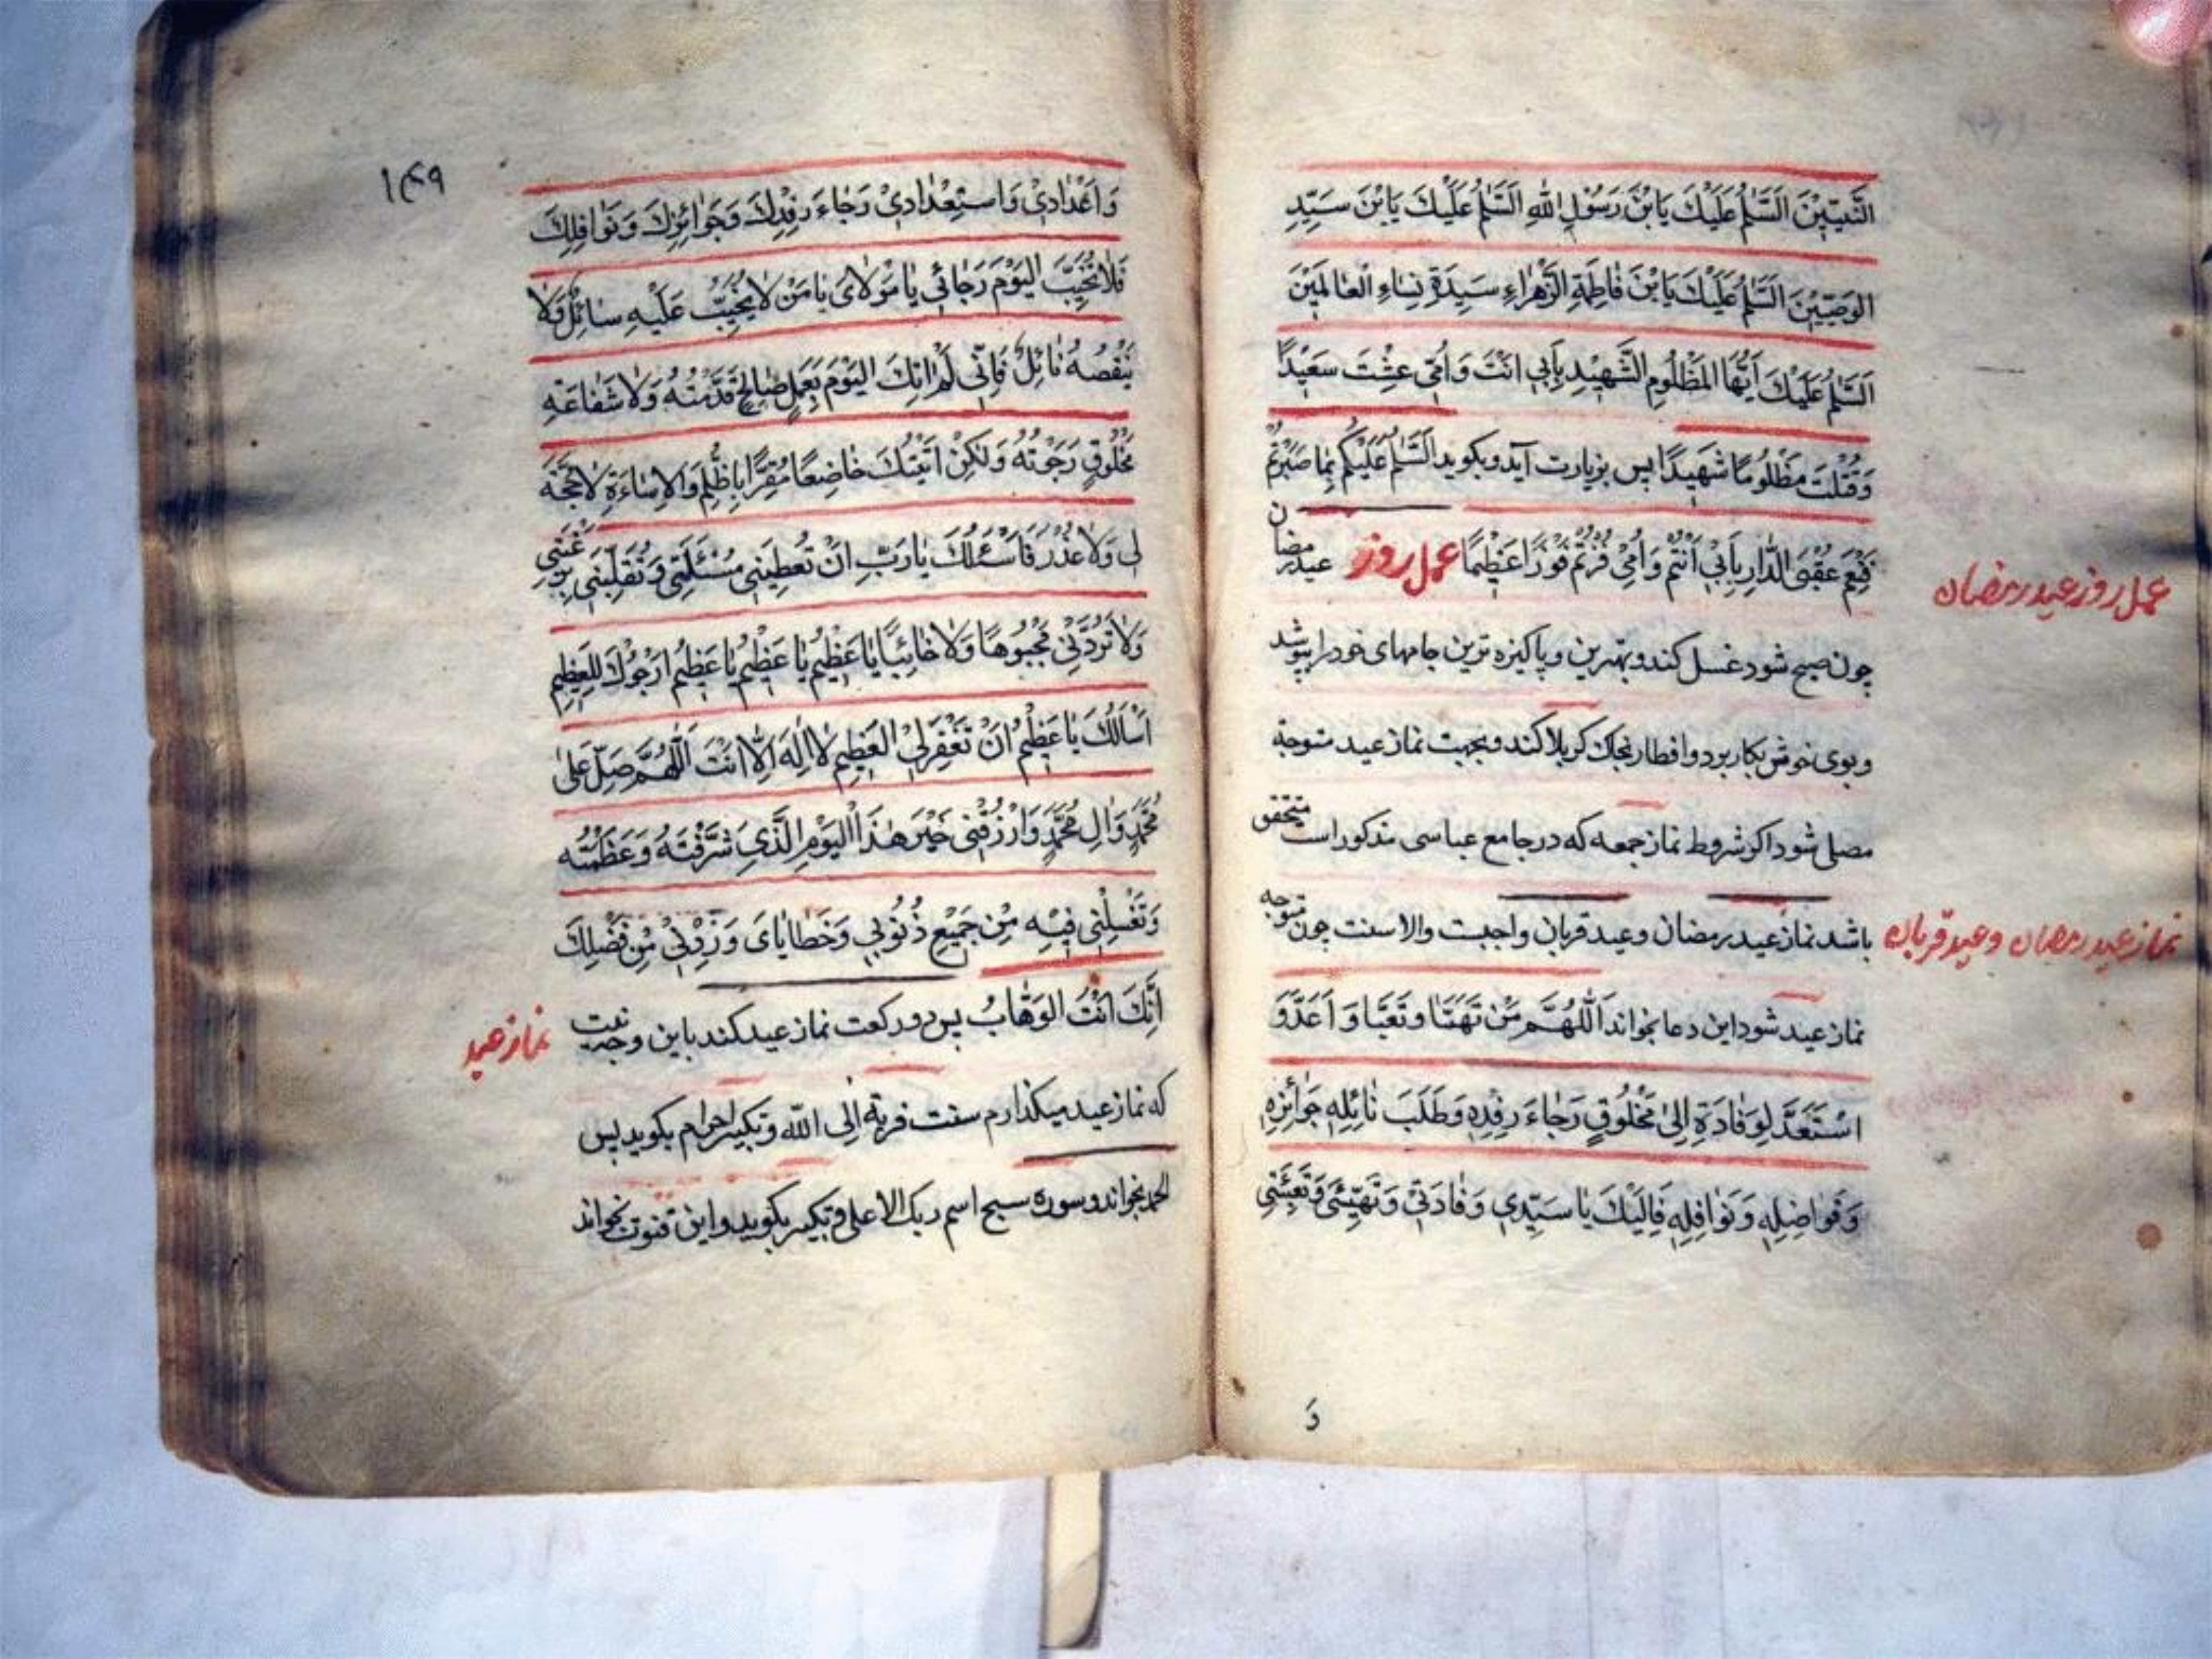 النَّبِيّينَ اَلسَّلٰمُ عَلَيْكَ يَا بْنَ رَسُوْلِ اللّٰهِ اَلسَّلٰمُ عَلَيْكَ يَا بْنَ سَيِّدِ
الوَصِيّيْنَ اَلسَّلٰمُ عَلَيْكَ يَا بْنَ فَاطِمَةِ الزَّهْرَاءِ سَيِدَةِ نِسَاءِ الْعٰالَمِيْنَ
اَلسَّلٰمُ عَلَيْكَ اَيُّهَا المَظْلُومِ الشَّهِيْدِ بِاَبِي اَنْتَ وَاُمّي عِشْتَ سَعِيْدًا
وَقُتِلْتَ مَظْلُومًا شَهِيدًا پس بزيارت آيد وبكويد اَلسَّلٰمُ عَلَيْكُمْ بِمَا صَبَرْتُمْ
فَنِعْمَ عُقْبَى الدَّارِ بِاَبِيْ اَنْتُمْ وَاُمِّيْ فُزْتُمْ فَوْزًا عَظِيْمًا عمل روز عيد رمضان
عمل روز عيد رمضان
چون صبح شود غسل كند وبهترين وپاكيزه ترين جامهاى خود را بپوشد
وبوى خوش بكار برد وافطار بخاك كربلا كند وبجهت نماز عيد متوجة
مصلى شود اكر شروط نماز جمعه كه در جامع عباسى مذكور است متحقق
باشد نماز عيد رمضان وعيد قربان واجبست والا سنت چون متوجه
نماز عيد رمضان وعيد قربان
نماز عيد شود اين دعا بخواند اَللّٰهُمَّ مَنْ تَهَيَّا وَتَعَبَّا وَاَعَدَّ وَ
اسْتَعَدَّ لِوِفَادَةٍ اِلىٰ مَخْلُوقٍ رَجَاءَ رِفْدِهِ وَطَلَبَ نَائِلِهِ جَوَائِزِهِ
وَفَوَاضِلِهِ وَنَوَافِلِهِ فَاِلَيْكَ يَا سَيِّدِي وَفَادَتِيْ وَتَهْيِئَتِي وَتَعْبِئَتِي
وَ
۱۴۹
وَاَعْدَادِيْ وَاسْتِعْدَادِيْ رَجَاءَ رِفْدِكَ وَجَوَائِزِكَ وَنَوَافِلِكَ
فَلَا تُخَيِّبَ اليَوْمَ رَجَائِي يَا مَوْلَاىَ يَا مَنْ لَا يَخِيْبُ عَلَيْهِ سَائِلٌ وَلَا
يَنْقُصُهُ نَائِلٌ فَاِنّي لَمْ اٰتِكَ اليَوْمَ بِعَمَلٍ صَالِحٍ قَدَّمْتُهُ وَلَا شَفَاعَةِ
مَخْلُوقٍ رَجَوْتُهُ وَلٰكِنْ اَتَيْتُكَ خَاضِعًا مُقِرًّا بِالظُّلْمِ وَالاِسَاءَةِ لَا حُجَّةَ
لي وَلَا عُذْرَ فَاَسْئَلُكَ يَا رَبِّ اَنْ تُعْطِيَنِي مَسْئَلَتِي وَتُقَلِّبَنِي بِرَغْبَتِي
وَلَا تَرُدَّنِيْ مَجْبُوْهًا وَلَا خَائِبًا يَا عَظِيْمُ يَا عَظِيْمُ يَا عَظِيْمُ اَرْجُوكَ لِلعَظِيْمِ
اَسْاَلُكَ يَا عَظِيْمُ اَنْ تَغْفِرَ لِيْ العَظِيمَ لَا اِلٰهَ اِلَّا اَنْتَ اَللّٰهُمَّ صَلِّ عَلىٰ
مُحَمَّدٍ وَاٰلِ مُحَمَّدٍ وَارْزُقْنِي خَيْرَ هٰذَا الْيَوْمِ الَّذِي شَرَّفْتَهُ وَعَظَّمْتَهُ
وَتَغْسِلْنِي فِيْهِ مِنْ جَمِيْعِ ذُنُوْبِي وَخَطَايَاىَ وَزِدْنِيْ مِنْ فَضْلِكَ
اِنَّكَ اَنْتَ الوَهَّابُ پس دو ركعت نماز عيد كند باين وجه نيت
نماز عيد
كه نماز عيد ميكذارم سنت قربة الى اللّه وتكبير احرام بكويد پس
الحمد بخواند وسوره سبح اسم ربك الاعلى وتكبير بكويد واين قنوت بخواند